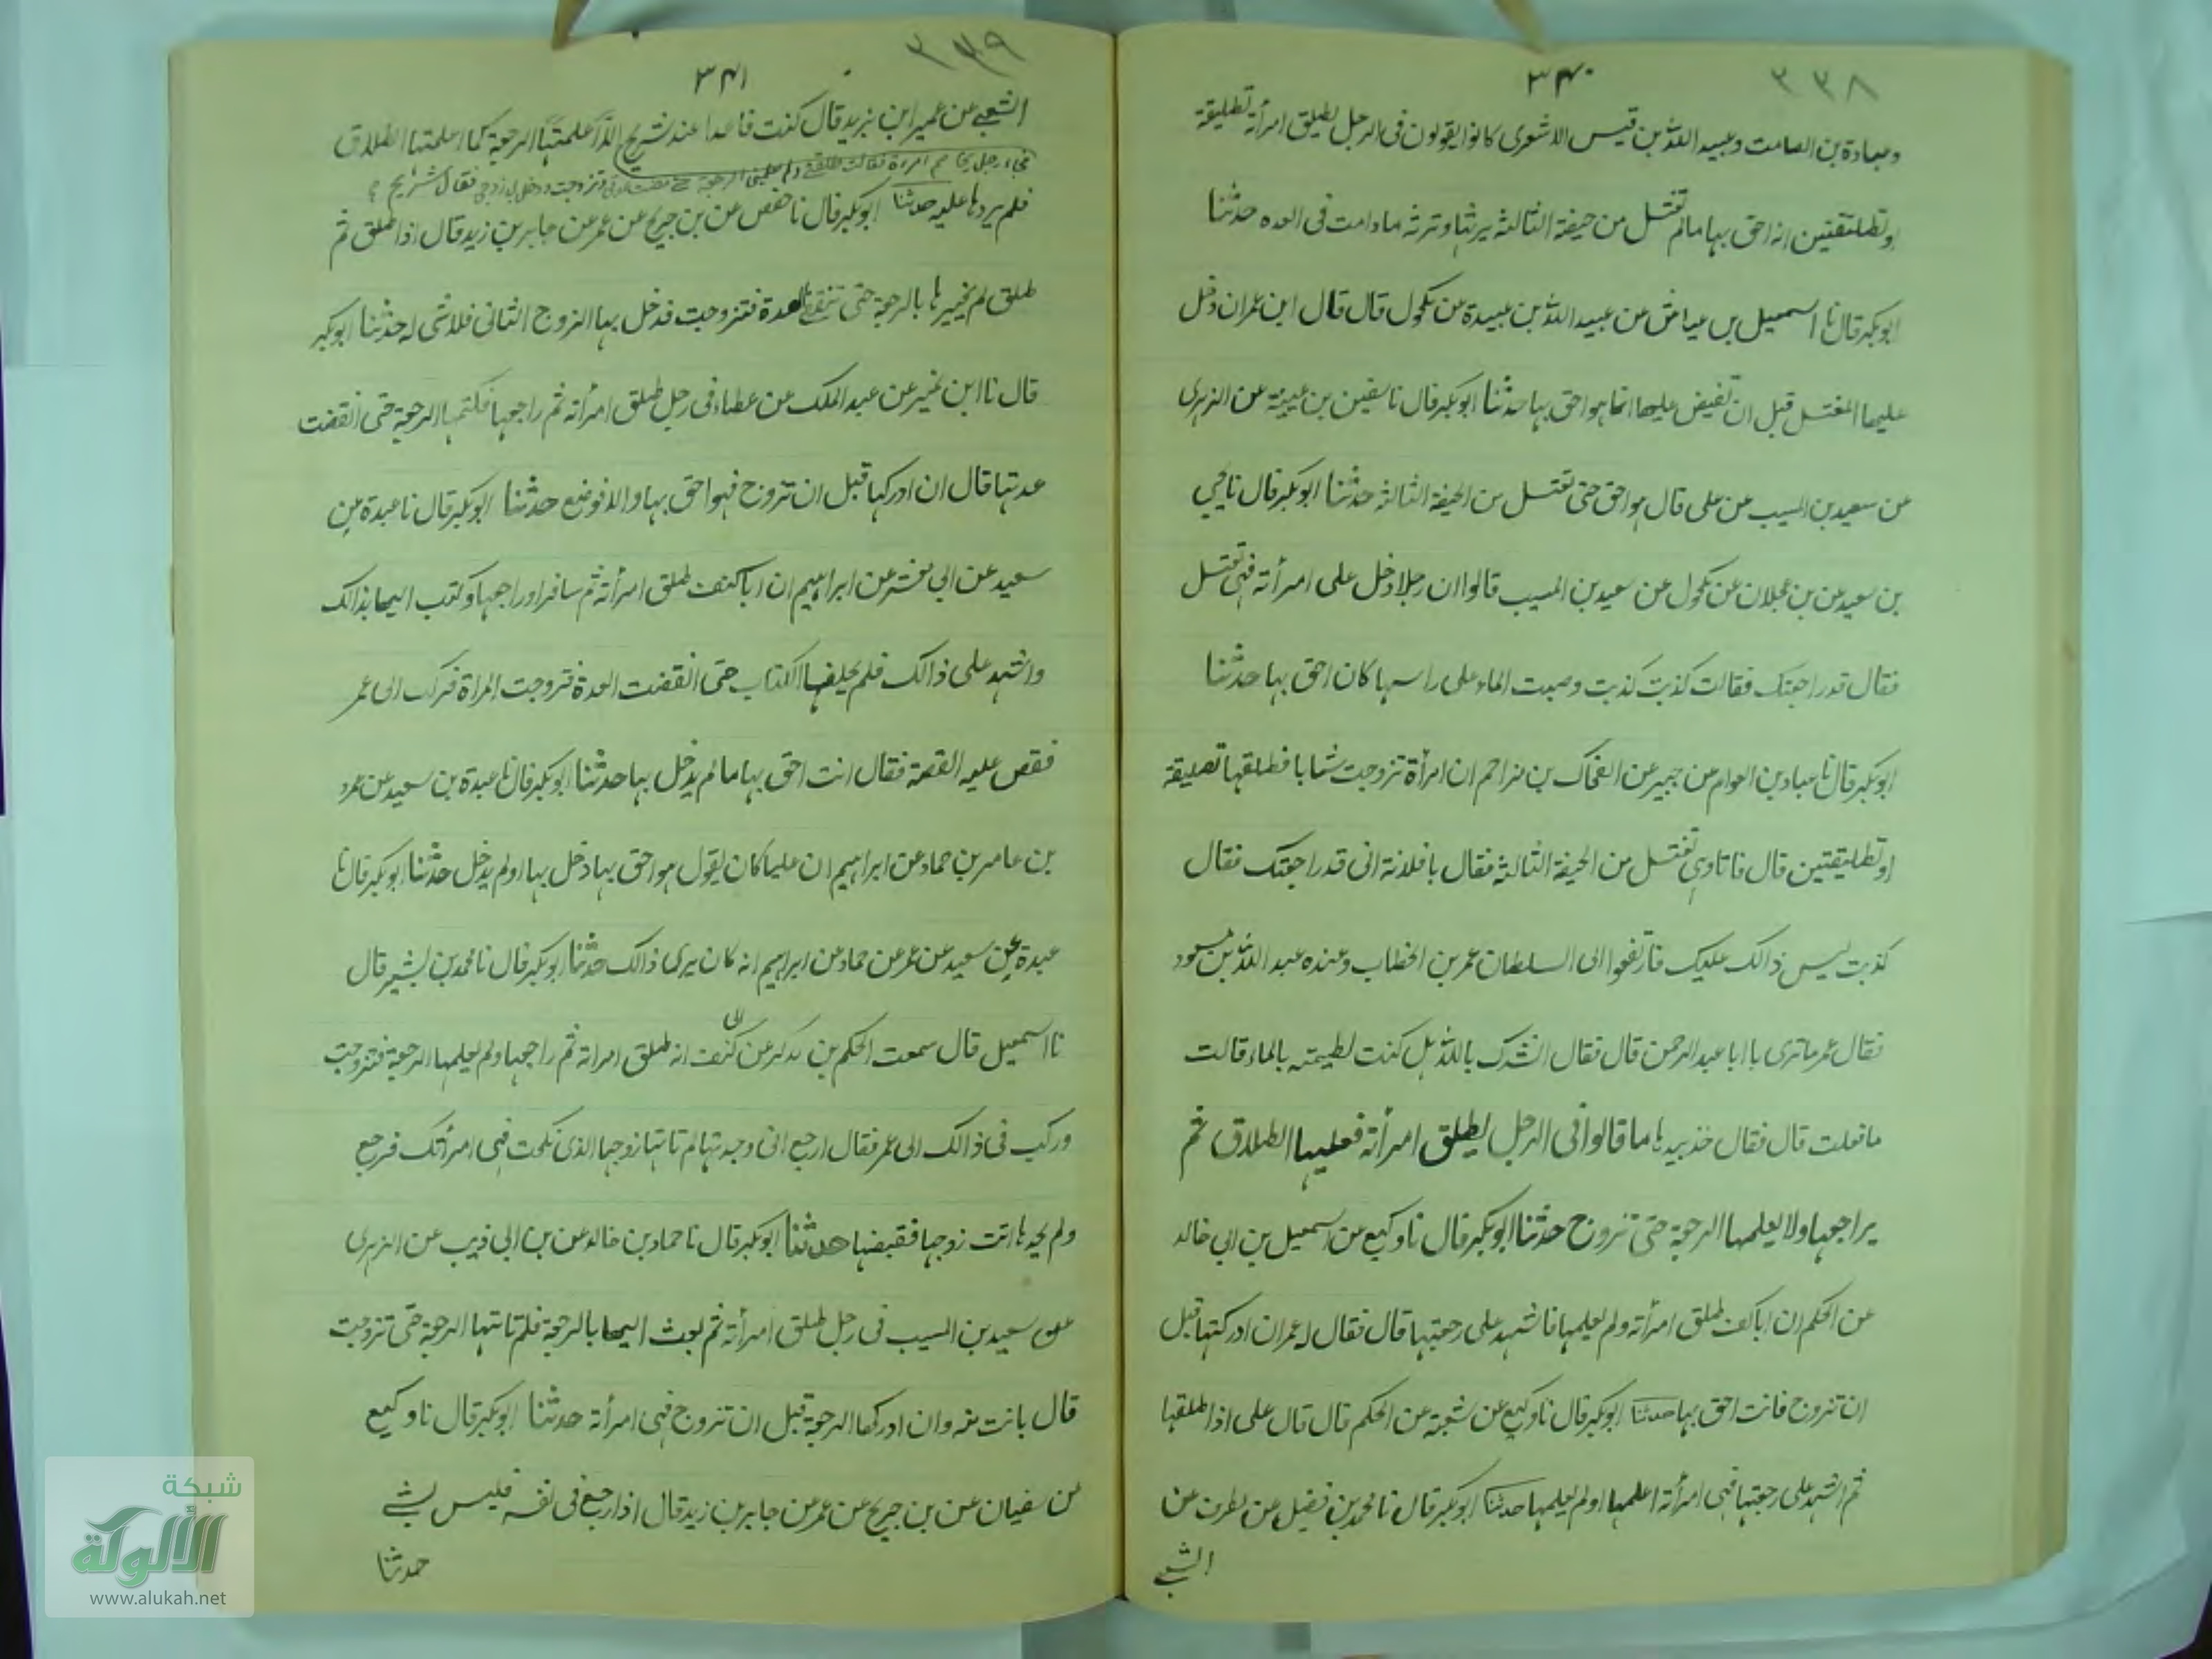 ٣٣٨
٣٤٠
وعبادة بن الصامت وعبد الله بن قيس الاشعرى كانوا يقولون فى الرجل يطلق امرأته تطليقة
او تطليقتين انه احق بها مالم تغتسل من حيضة الثالثة يرثها وترثه مادامت فى العده حدثنا
ابو بكر قال نا اسمعيل بن عياش عن عبيد الله بن عبيدة عن مكحول قال قال ابن عمران دخل
عليها المغتسل قبل ان تفيض عليها الماء هو احق بها حدثنا ابو بكر قال نا سفين بن عيينة عن الزهرى
عن سعيد بن المسيب عن على قال هو احق حتى تغتسل من الحيضة الثالثة حدثنا ابو بكر قال نا يحيى
بن سعيد عن بن عجلان عن مكحول عن سعيد بن المسيب قالوا ان رجلا دخل على امرأته فهى تغتسل
فقال قد راجعتك فقالت كذبت كذبت وصبت الماء على راسها كان احق بها حدثنا
ابو بكر قال نا عباد بن العوام عن جبير عن الضحاك بن مزاحم ان امرأة تزوجت شابا فطلقها تطليقة
او تطليقتين قال فاتا وهى تغتسل من الحيضة الثالثة فقال يا فلانة انى قد راجعتك فقال
كذبت ليس ذالك عليك فارتفعوا الى السلطان عمر بن الخطاب وعنده عبد الله بن مسعود
فقال عمر ماترى يا ابا عبد الرحمن قال فقال انشدك بالله هل كنت لطيمته بالماء قالت
مافعلت قال فقال خذ بيدها ما قالوا فى الرجل يطلق امرأته فعليها الطلاق ثم
يراجعها ولا يعلمها الرجعة حتى تزوج حدثنا ابو بكر قال نا وكيع عن اسمعيل بن ابي خالد
عن الحكم ان ابا كنف طلق امرأته ولم يعلمها فاشهد على رجعتها قال فقال له عمر ان ادركتها قبل
ان تزوج فانت احق بها حدثنا ابو بكر قال نا وكيع عن شعبة عن الحكم قال قال على اذا طلقها
ثم اشهد على رجعتها فهى امرأته اعلمها او لم يعلمها حدثنا ابو بكر قال نا محمد بن فضيل عن مطرف عن
الشعبى
٣٣٩
٣٤١
الشعبى عن عمير ابن يزيد قال كنت قاعدا عند شريح الذ اعلمتها الرجعة كما اعلمتها الطلاق
فجاءه رجل يخاصم امراة فقالت طلقنى ولم يعلمنى الرجعة حتى مضت عدتى وتزوجت ودخل بى زوجى فقال شريح
فلم يردها عليه حدثنا ابو بكر قال نا حفص عن بن جريج عن عمر عن جابر بن زيد قال اذا طلق ثم
طلق لم يخبرها بالرجعة حتى تنقضى العدة فتزوجت فدخل بها الزوج الثانى فلا شى له حدثنا ابو بكر
قال نا ابن نمير عن عبد الملك عن عطاء فى رجل طلق امرأته ثم راجعها فكتمها الرجعة حتى انقضت
عدتها قال ان ادركها قبل ان تتزوج فهو احق بها والا فوضع حدثنا ابو بكر قال نا عبدة بن
سعيد عن ابى معشر عن ابراهيم ان ابا كنف طلق امرأته ثم سافر اوراجعها وكتب اليها بذالك
واشهد على ذالك فلم يبلغها الكتاب حتى انقضت العدة فتزوجت المراة فركب الى عمر
فقص عليه القصة فقال انت احق بها مالم يدخل بها حدثنا ابو بكر قال نا عبدة بن سعيد عن عمرو
بن عامر بن حماد عن ابراهيم ان عليا كان يقول هو احق بها دخل بها او لم يدخل حدثنا ابو بكر قال نا
عبدة عن سعيد عن عمر عن حماد عن ابراهيم انه كان يرى ذالك حدثنا ابو بكر قال نا محمد بن بشير قال
نا اسمعيل قال سمعت الحكم بن عن ابى كنف انه طلق امراته ثم راجعها ولم يعلمها الرجعة فتزوجت
وركب فى ذالك الى عمر فقال ارجع انى وجدتها لم تاتها زوجها الذى نكحت فهى امرأتك فرجع
ولم يجدها اتت زوجها فقبضها حدثنا ابو بكر قال نا حماد بن خالد عن بن ابى ذيب عن الزهرى
عن سعيد بن المسيب فى رجل طلق امرأته ثم بعث اليها بالرجعة فلم تاتها الرجعة حتى تزوجت
قال بانت منه وان ادركها الرجعة قبل ان تتزوج فهى امرأته حدثنا ابو بكر قال نا وكيع
عن سفيان عن بن جريج عن عمر عن جابر بن زيد قال اذا رجع فى نفسه فليس بشئ
حدثنا
شبكة
الألوكة
www.alukah.net